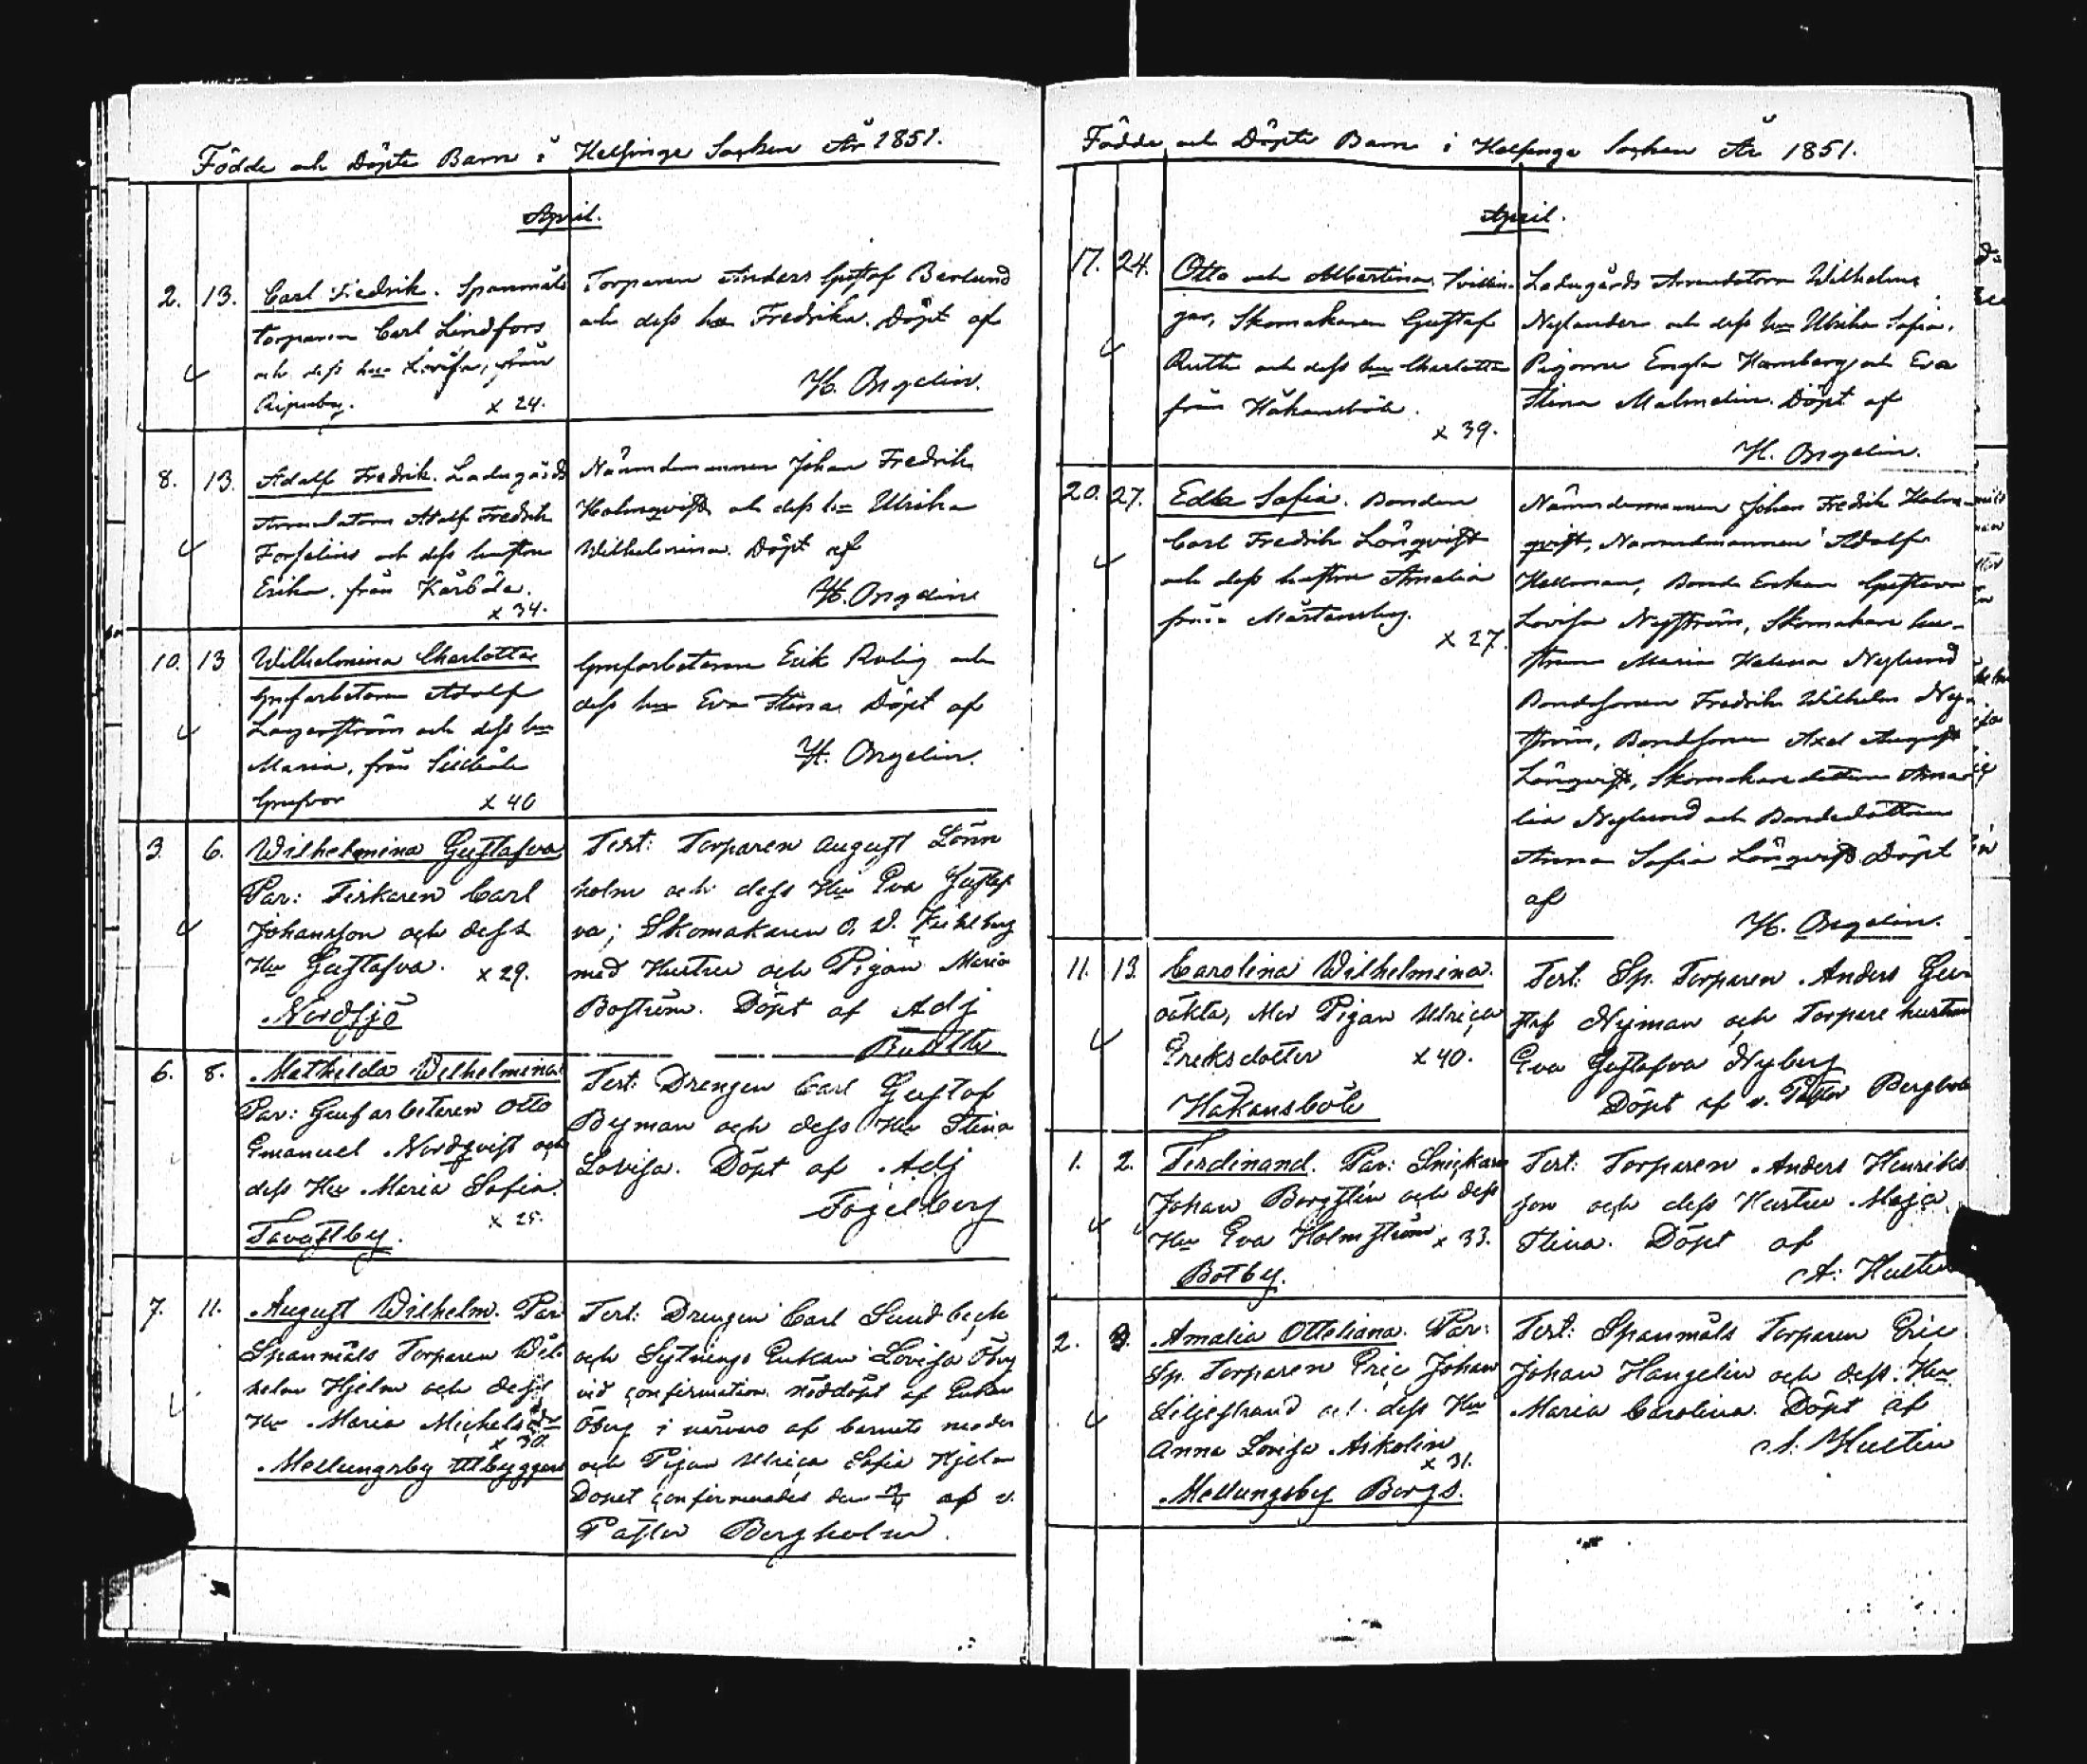 Födde och Döpte Barn i Helsinge Sochen År 1851.
April.
2. 13. Carl Fredrik. Spanmåls
torparen Carl Lindfors
och dess hu Lovisa, från
Ripuby. x 24.
Torparen Anders Gustaf Berlund
och dess hu Fredrika. Döpt af
H. Ongelin.
8. 13. Adolf Fredrik. Ladugårds
Arrendatorn Adolf Fredrik
Forselius och dess hustru
Erika, från Kårböle.
x 34.
Nämndemannen Johan Fredrik
Holmqvist och dess hu Ulrika
Wilhelmina. Döpt af
H. Ongelin
10. 13 Wilhelmina Charlotta
Grufarbetaren Adolf
Lagerström och dess hu
Maria, från Sillböle
Grufvor x 40
Grufarbetaren Erik Rolig och
dess hu Eva Stina. Döpt af
H. Ongelin.
3. 6. Wilhelmina Gustafva
Par: Fiskaren Carl
Johansson och dess
Hu Gustafva. x 29.
Nordsjö
Test: Torparen August Lönn
holm och dess Hu Eva Gustaf
va; Skomakaren
med Hustru och Pigan Maria
Boström. Döpt af Adj
6. 8. Mathilda Wilhelmina
Par: Grufarbetaren Otto
Emanuel Nordqvist och
dess Hu Maria Sofia.
x 25.
Tavastby.
Test: Drengen Carl Gustaf
Byman och dess Hu Stina
Lovisa. Döpt af Adj
Fogelberg
7. 11. August Wilhelm. Par
Spanmåls Torparen Wil
helm Hjelm och dess
Hu Maria Michelsdr
x 30.
Mellungsby Utbyggare
Test: Drengen Carl Sundbeck
och Sytnings Enkan Lovisa Öberg
vid confirmation. nöddöpt af Enkan
Öberg i närvaro af barnets moder
och Pigan Ulrica Sofia Hjelm
Dopet confirmerades den af v.
Pastor Bergholm.
Födde och Döpte Barn i Helsinge Sochen År 1851.
April.
17. 24. Otto och Albertina, Tvillin-
gar, Skomakaren Gustaf
Ruth och dess hu Charlotta
från Håkansböle.
x 39.
Ladugårds Arrendatorn Wilhelm
Nylander och dess hu Ulrika Sofia,
Pigorna Engla Hamberg och Eva
Stina Malmelin. Döpt af
H. Ongelin.
20. 27. Edla Sofia. Bonden
Carl Fredrik Lönqvist
och dess hustru Amalia
från Mårtensby.
x 27.
Nämndemannen Johan Fredrik Holm-
qvist, Nämndmannen Adolf
Hellman, Bond Enkan Gustava
Lovisa Nyström, Skomakare hu-
strun Maria Helena Nylund
Bondesonen Fredrik Wilhelm Ny-
ström, Bondsonen Axel August
Lönqvist, Skomakare dottren Ama-
lia Nylund och Bondedottren
Anna Sofia Lönqvist. Döpt
af
H. Ongelin.
11. 13. Carolina Wilhelmina.
oäkta, Mor Pigan Ulrica
Ereksdotter x 40.
Håkansböle
Test: Sp. Torparen Anders Gu-
staf Nyman och Torpare hustrun
Eva Gustafva Nyberg
Döpt af v. Pastor Bergholm
1. 2. Ferdinand. Par: Snickaren
Johan Bergsten och dess
Hu Eva Holmström x 33.
Botby.
Test: Torparen Anders Henriks
son och dess Hustru Maja
Stina. Döpt af
A: Hultin
2. 3. Amalia Otteliana. Par:
Sp. Torparen Eric Johan
Liljestrand och dess Hu
Anna Lovisa Askolin
x 31.
Mellungsby Bergs.
Test: Spanmåls Torparen Eric
Johan Hangelin och dess Hu
Maria Carolina. Döpt af
A: Hultin